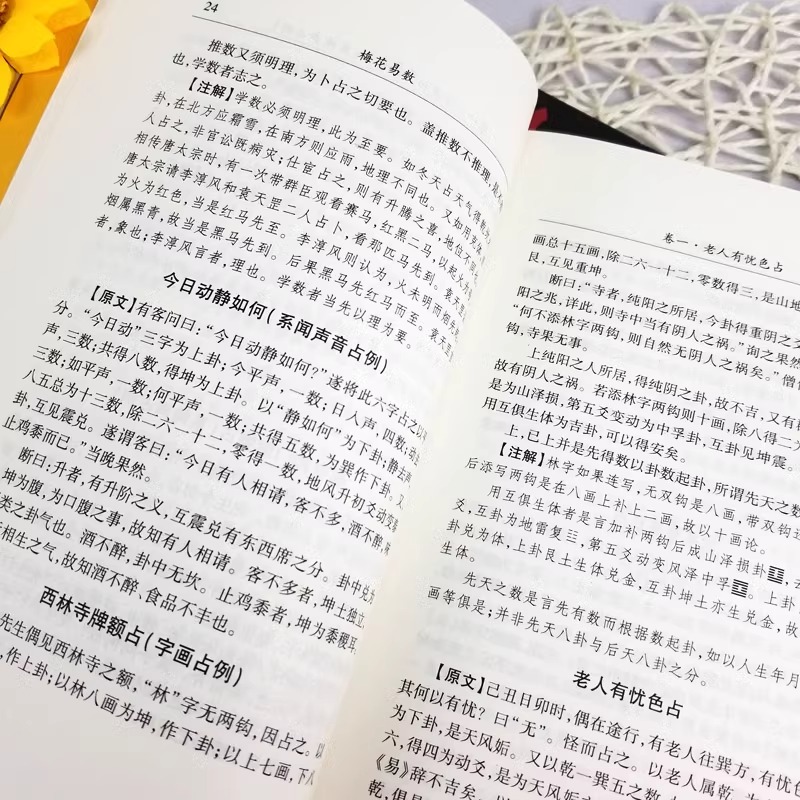 24
梅花易数
推数又须明理，为卜占之切要也。盖推数不推理，是
也，学数者志之。
【注解】学数必须明理，此为至要。如冬天占天气得
卦，在北方应霜雪，在南方则应雨，地理不同也。又如用
人占之，非官讼既病灾；仕宦占之，则有升腾之喜，地位不同
相传唐太宗时，有一次带群臣观看赛马，红黑二马，以起
唐太宗请李淳风和袁天罡二人占卜，看那匹马先到。袁天
为火为红色，当是红马先至。李淳风则认为，火未明而烟先
烟属黑青，故当是黑马先到。后果黑马先红马而至。袁天罡
者，象也；李淳风言者，理也。学数者当先以理为要。
今日动静如何（系闻声音占例）
【原文】有客问曰：“今日动静如何？”遂将此六字占之
分。“今日动”三字为上卦；今平声，一数；日入声，四数；动
声，三数；共得八数，得坤为上卦。以“静如何”为下卦；静去声
三数；如平声，一数；何平声，一数；共得五数，为巽作下卦。又
八五总为十三数，除二六一十二，零得一数，地风升初爻动变泰
卦，互见震兑。遂谓客曰：“今日有人相请，客不多，酒不醉，味
止鸡黍而已。”当晚果然。
断曰：升者，有升阶之义，互震兑有东西席之分。卦中兑
坤为腹，为口腹之事，故知有人相请。客不多者，坤土独立
类之卦气也。酒不醉，卦中无坎。止鸡黍者，坤为黍稷耳
相生之气，故知酒不醉，食品不丰也。
西林寺牌额占（字画占例）
先生偶见西林寺之额，“林”字无两钩，因占之。以
，作上卦；以林八画为坤，作下卦；以上七画，下八
卷一·老人有忧色占
画总十五画，除二六一十二，零数得三，是山地
艮，互见重坤。
断曰：“寺者，纯阳之所居，今卦得重阴之爻
阳之兆，详此，则寺中当有阴人之祸。”询之果然
“何不添林字两钩，则自然无阴人之祸矣。”僧
钩，寺果无事。
上纯阳之人所居，得纯阴之卦，故不吉，又有
故有阴人之祸。若添林字两钩则十画，除八得二为
是为山泽损，第五爻变动为中孚卦，互卦见坤震。
用互俱生体为吉卦，可以得安矣。
上，已上并是先得数以卦数起卦，所谓先天之数
【注解】林字如果连写，无双钩是八画，带双钩
后添写两钩是在八画上补上二画，故以十画论。
用互俱生体者是言加补两钩后成山泽损卦䷨，
爻，互卦为地雷复䷗，第五爻动变风泽中孚䷼。上卦
卦兑为体，上卦艮土生体兑金，互卦坤土亦生兑金，故
生体。
先天之数是言先有数而根据数起卦，如以人生年月
画等俱是；并非先天八卦与后天八卦之分。
老人有忧色占
【原文】己丑日卯时，偶在途行，有老人往巽方，有忧色
其何以有忧？曰“无”。怪而占之。以老人属乾，为
为下卦，是天风姤。又以乾一巽五之数
六，得四为动爻，是为天风姤
《易》辞不吉矣。以
乾，俱是